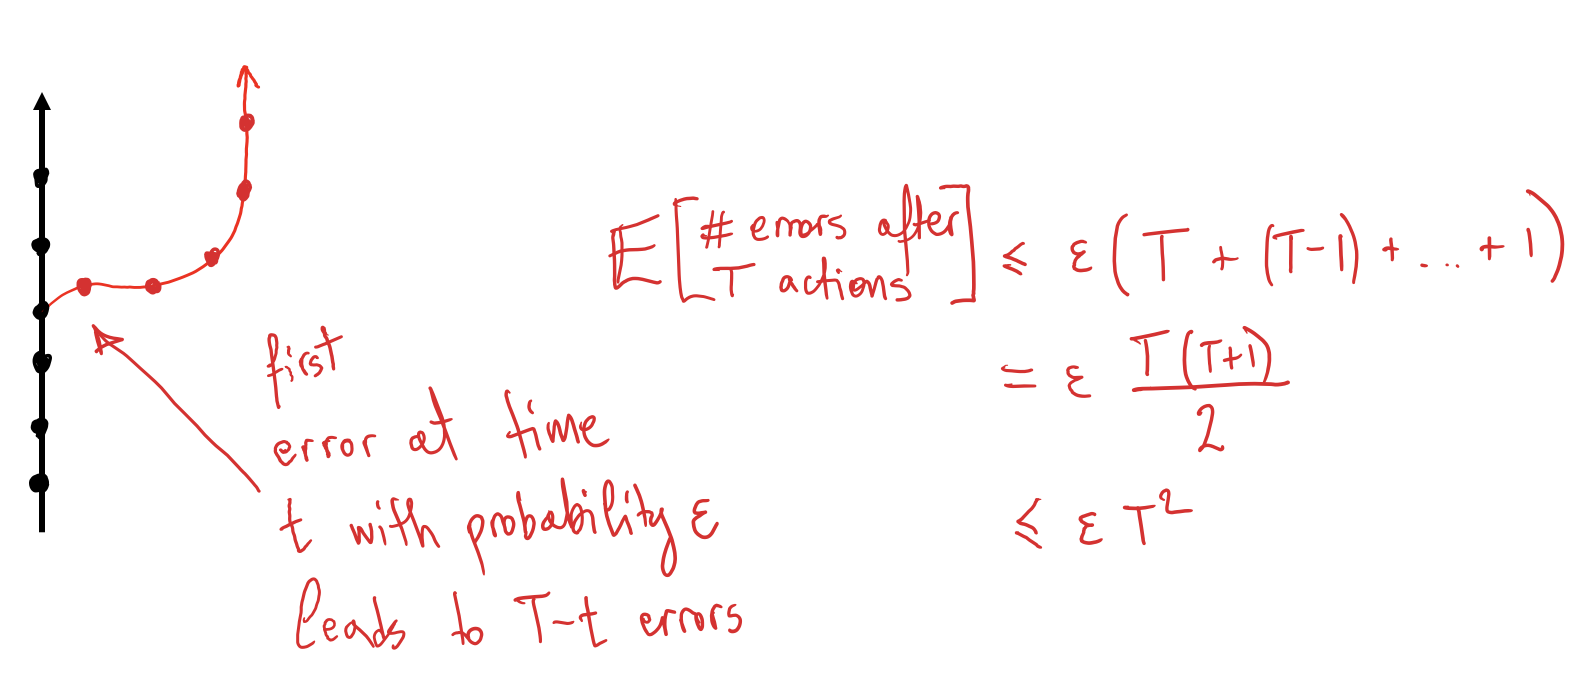 first
error at time
t with probability ε
leads to T-t errors
E[# errors after T actions] ≤ ε(T + (T-1) + ... + 1)
= ε T(T+1)/2
≤ ε T²